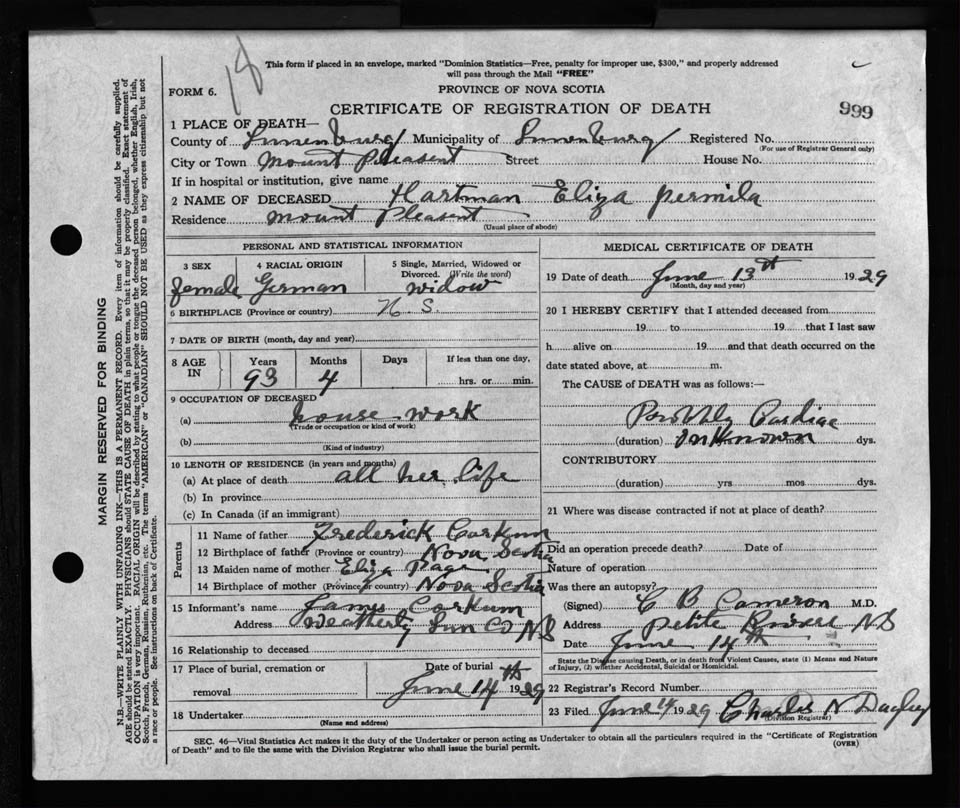 18
This form if placed in an envelope, marked "Dominion Statistics—Free, penalty for improper use, $300," and properly addressed
will pass through the Mail "FREE"
FORM 6.
PROVINCE OF NOVA SCOTIA
CERTIFICATE OF REGISTRATION OF DEATH
999
1 PLACE OF DEATH—
County of Lunenburg Municipality of Lunenburg Registered No.
(For use of Registrar General only)
City or Town Mount Pleasent Street House No.
If in hospital or institution, give name
2 NAME OF DECEASED Hartman Eliza permila
Residence Mount Pleasent
(Usual place of abode)
PERSONAL AND STATISTICAL INFORMATION
3 SEX 4 RACIAL ORIGIN 5 Single, Married, Widowed or
Divorced. (Write the word)
female German widow
6 BIRTHPLACE (Province or country) N. S.
7 DATE OF BIRTH (month, day and year)
8 AGE IN Years Months Days If less than one day,
93 4 hrs. or min.
9 OCCUPATION OF DECEASED
(a) house work
(Trade or occupation or kind of work)
(b)
(Kind of industry)
10 LENGTH OF RESIDENCE (in years and months)
(a) At place of death all her life
(b) In province
(c) In Canada (if an immigrant)
Parents
11 Name of father Frederick Corkum
12 Birthplace of father (Province or country) Nova Scotia
13 Maiden name of mother Eliza Page
14 Birthplace of mother (Province or country) Nova Scotia
15 Informant's name James Corkum
Address Lun Co N S
16 Relationship to deceased
17 Place of burial, cremation or
removal
Date of burial
June 14th 1929
18 Undertaker
(Name and address)
MEDICAL CERTIFICATE OF DEATH
19 Date of death June 13th 1929
(Month, day and year)
20 I HEREBY CERTIFY that I attended deceased from
19 to 19 that I last saw
h alive on 19 and that death occurred on the
date stated above, at m.
The CAUSE of DEATH was as follows:—
Cardiac
(duration) Unknown dys.
CONTRIBUTORY
(duration) yrs mos dys.
21 Where was disease contracted if not at place of death?
Did an operation precede death? Date of
Nature of operation
Was there an autopsy?
(Signed) C B Cameron M.D.
Address Petite Riviere N S
Date June 14th
State the Disease causing Death, or in death from Violent Causes, state (1) Means and Nature
of Injury, (2) whether Accidental, Suicidal or Homicidal.
22 Registrar's Record Number
23 Filed June 14 1929 Charles N
(Division Registrar)
SEC. 46—Vital Statistics Act makes it the duty of the Undertaker or person acting as Undertaker to obtain all the particulars required in the "Certificate of Registration
of Death" and to file the same with the Division Registrar who shall issue the burial permit.
(OVER)
MARGIN RESERVED FOR BINDING
N.B.—WRITE PLAINLY WITH UNFADING INK—THIS IS A PERMANENT RECORD. Every item of information should be carefully supplied.
AGE should be stated EXACTLY. PHYSICIANS should STATE CAUSE OF DEATH in plain terms, so that it may be properly classified. Exact statement of
OCCUPATION is very important. RACIAL ORIGIN will be described by stating to what people or tongue the deceased person belonged, whether English, Irish,
Scotch, French, German, Russian, Ruthenian, etc. The terms "AMERICAN" or "CANADIAN" SHOULD NOT BE USED as they express citizenship but not
a race or people. See instructions on back of Certificate.